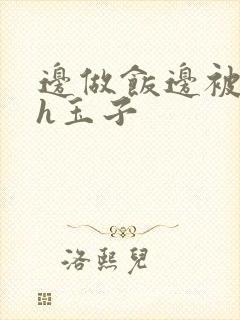 邊做飯邊被
h玉子
洛熙兒